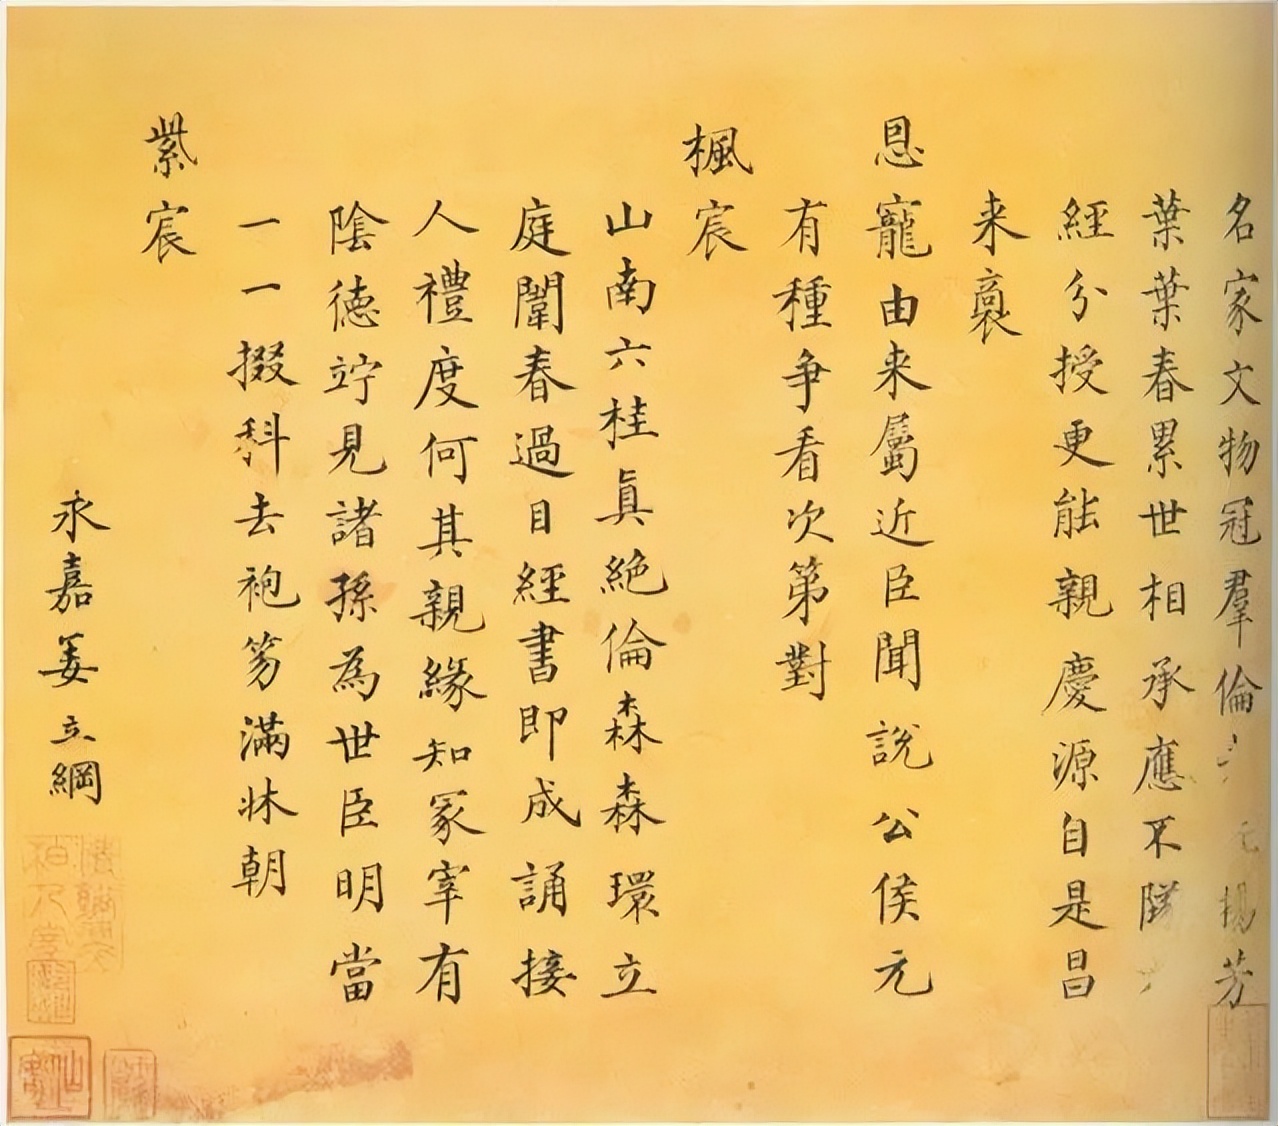 名家文物冠羣倫 元揚芳
葉葉春累世相承應不隊
經分授更能親慶源自是昌
来裔
恩寵由来屬近臣聞說公侯元
有種争看次第對
楓宸
山南六桂真絶倫森森環立
庭闈春過目經書即成誦接
人禮度何其親緣知冢宰有
陰德竚見諸孫為世臣明當
一一掇科去袍笏滿牀朝
紫宸
永嘉姜立綱